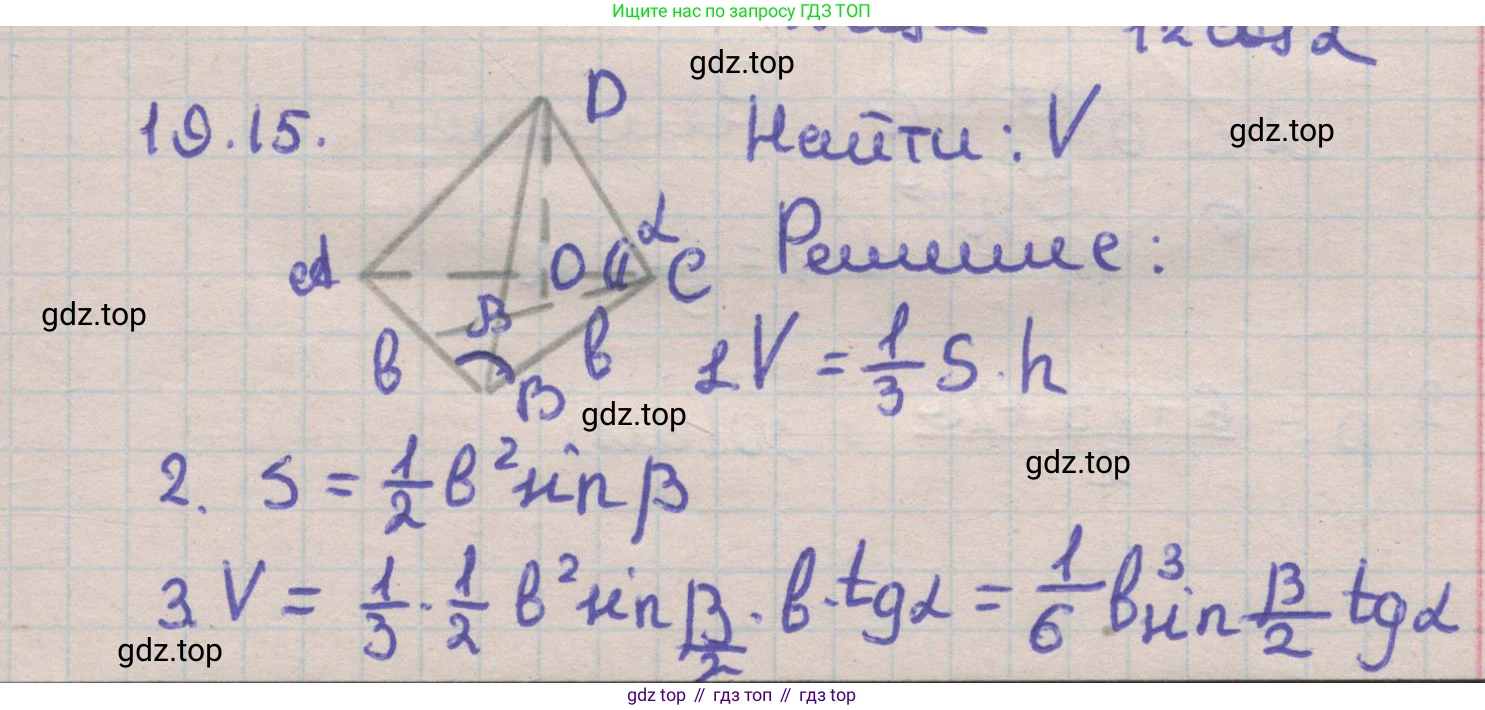 Ищите нас по запросу ГДЗ ТОП
12 cos α
gdz.top
19.15.
D
Найти: V
gdz.top
A
O
α
C
Решение:
gdz.top
β
в
в
B
1 V = 1/3 S · h
gdz.top
2. S = 1/2 в² sin β
gdz.top
3. V = 1/3 · 1/2 в² sin β/2 · в · tg α = 1/6 в³ sin β/2 tg α
gdz.top
gdz top // гдз топ // gdz top